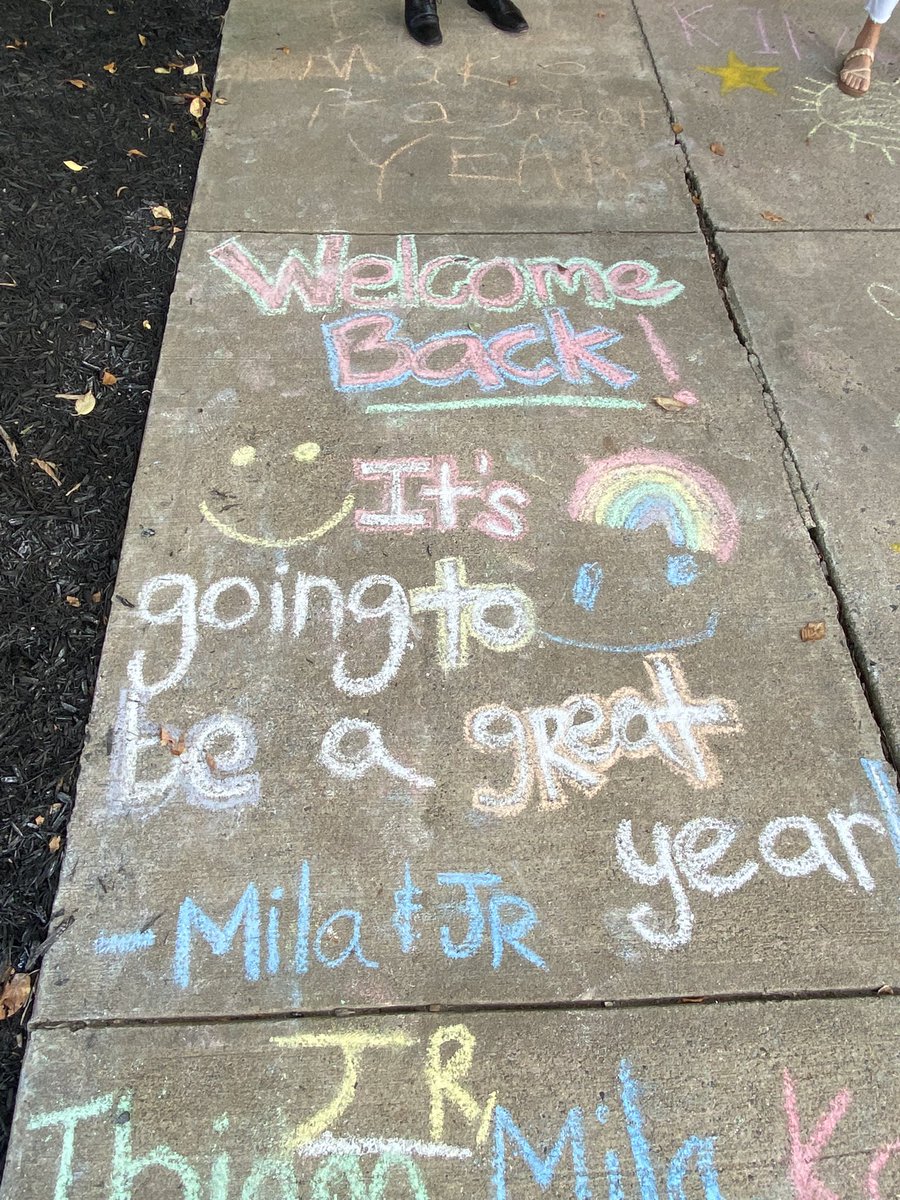 Make
a great
YEAR
KIN
Welcome
Back!
It's
going to
be a great
year!
- Mila & JR
JR,
Mila